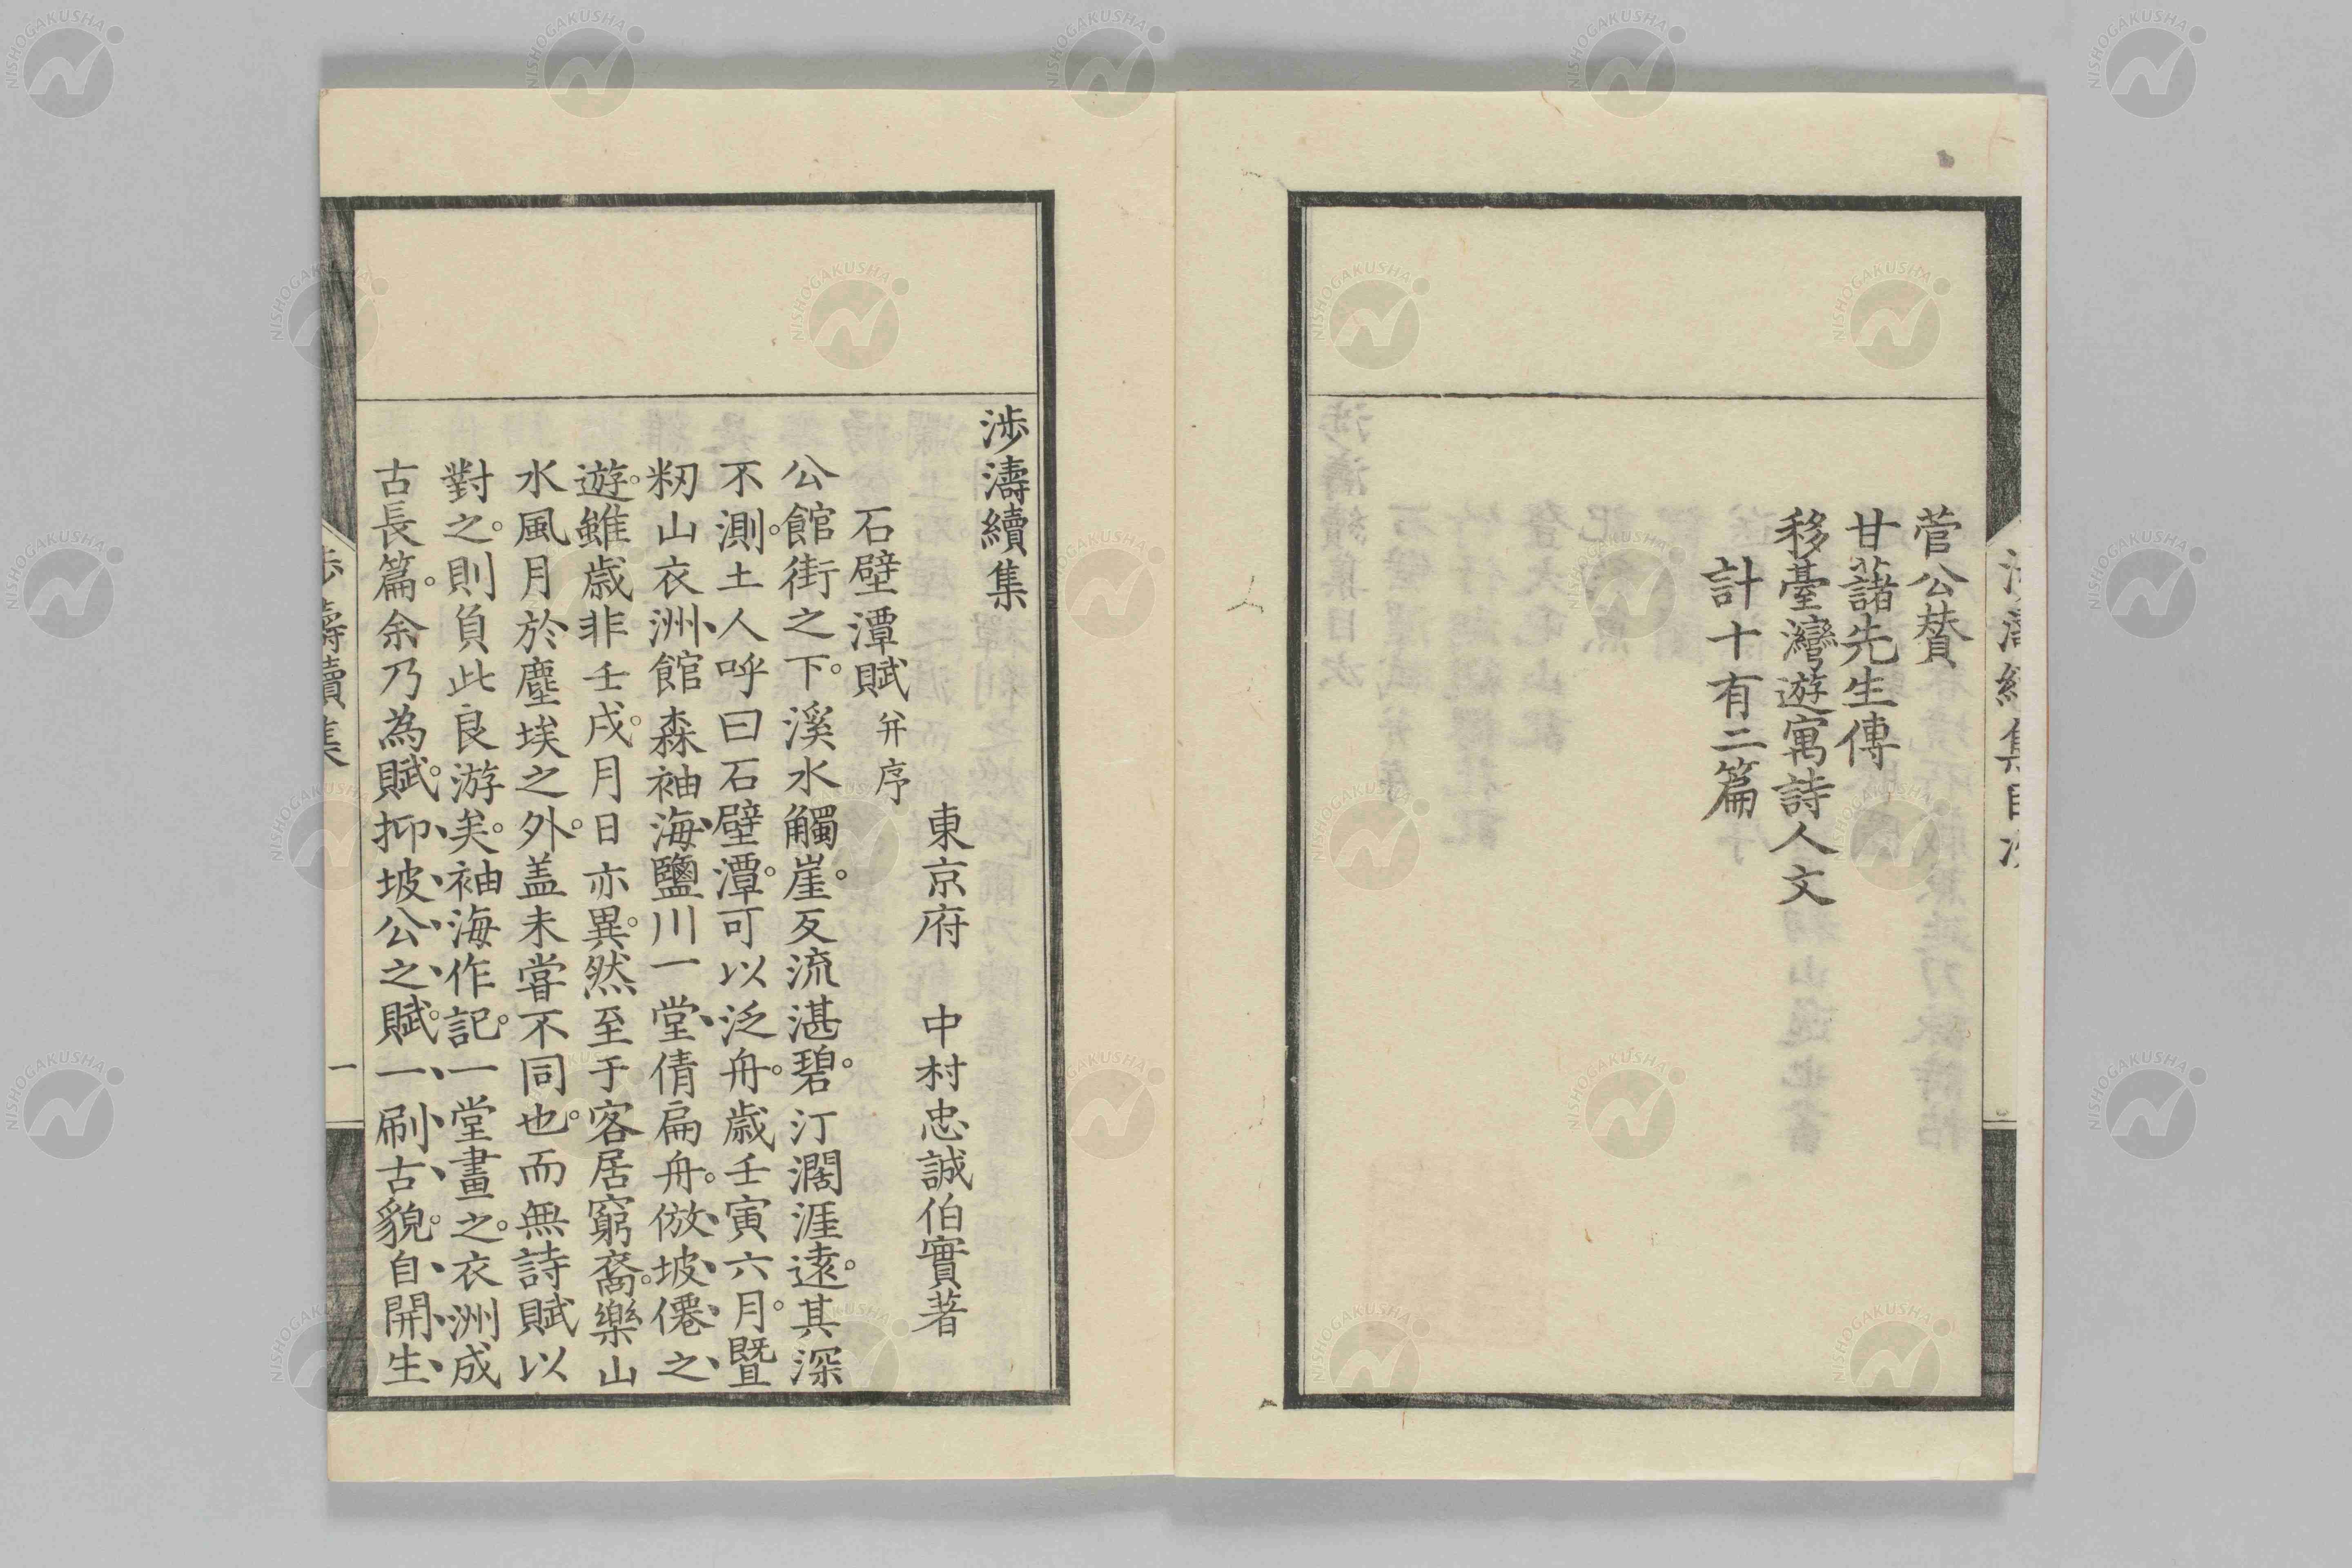 菅公贊
甘藷先生傳
移臺灣遊寓詩人文
計十有二篇
涉濤續集
東京府　中村忠誠伯實著
石壁潭賦 并序
公館街之下。溪水觸崖。反流湛碧。汀濶涯遠。其深
不測。土人呼曰石壁潭。可以泛舟。歲壬寅六月。暨
籾山衣洲、館森袖海、鹽川一堂、倩扁舟。倣坡僊之
遊。雖歲非壬戌。月日亦異。然至于客居窮裔。樂山
水風月於塵埃之外。盖未甞不同也。而無詩賦以
對之。則負此良游矣。袖海作記。一堂畫之。衣洲成
古長篇。余乃為賦。抑坡公之賦。一刷古貌。自開生
涉濤續集
一
NISHOGAKUSHA